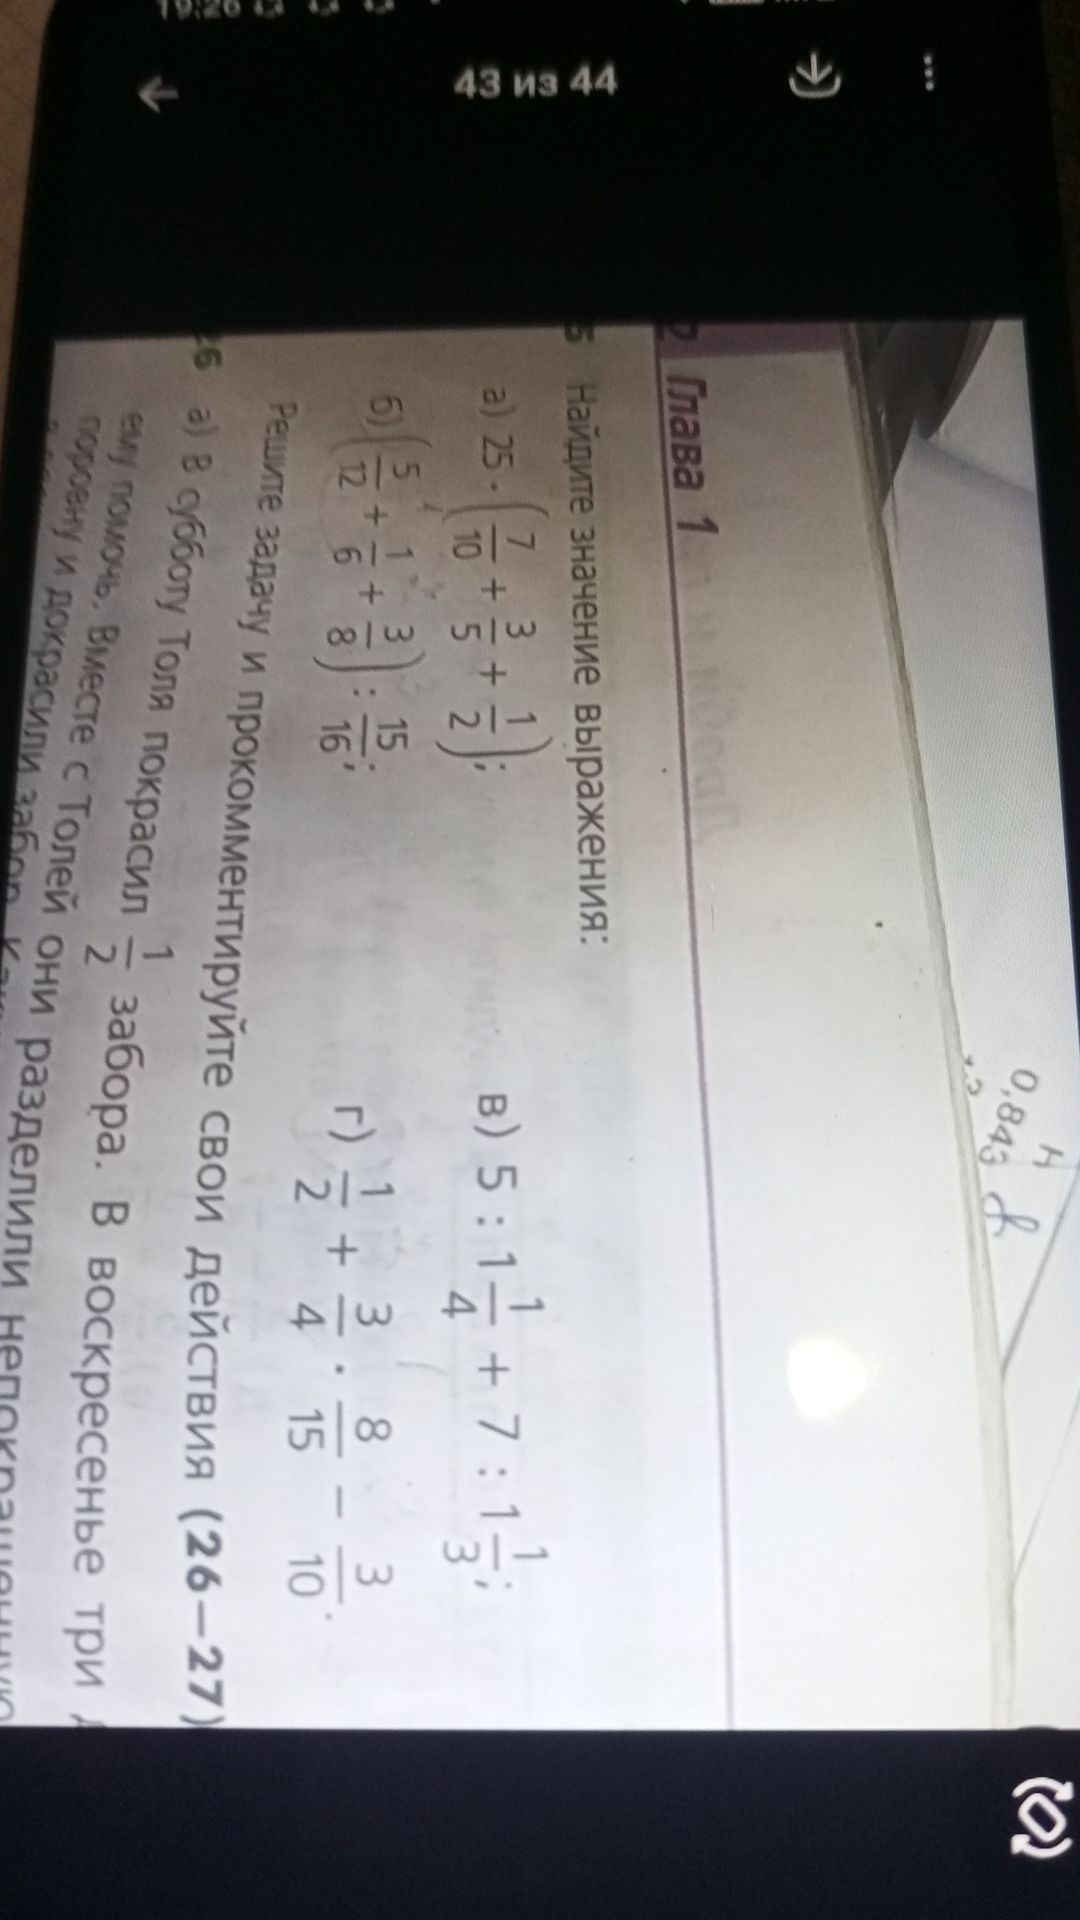 19:26
43 из 44
2 Глава 1
5 Найдите значение выражения:
а) 25 · (7/10 + 3/5 + 1/2);
в) 5 : 1 1/4 + 7 : 1 1/3;
б) (5/12 + 1/6 + 3/8) : 15/16;
г) 1/2 + 3/4 · 8/15 − 3/10.
Решите задачу и прокомментируйте свои действия (26—27)
26 а) В субботу Толя покрасил 1/2 забора. В воскресенье три
ему помочь. Вместе с Толей они разделили
поровну и докрасили забор.
0,843